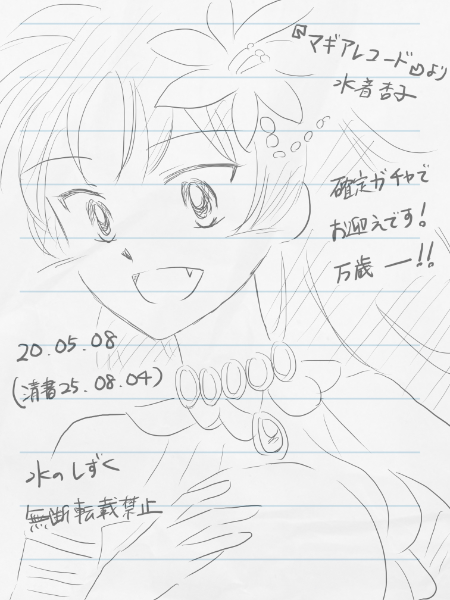 『マギアレコード』より
水着杏子
確定ガチャで
お迎えです!
万歳ー!!
20.05.08
(清書25.08.04)
水のしずく
無断転載禁止